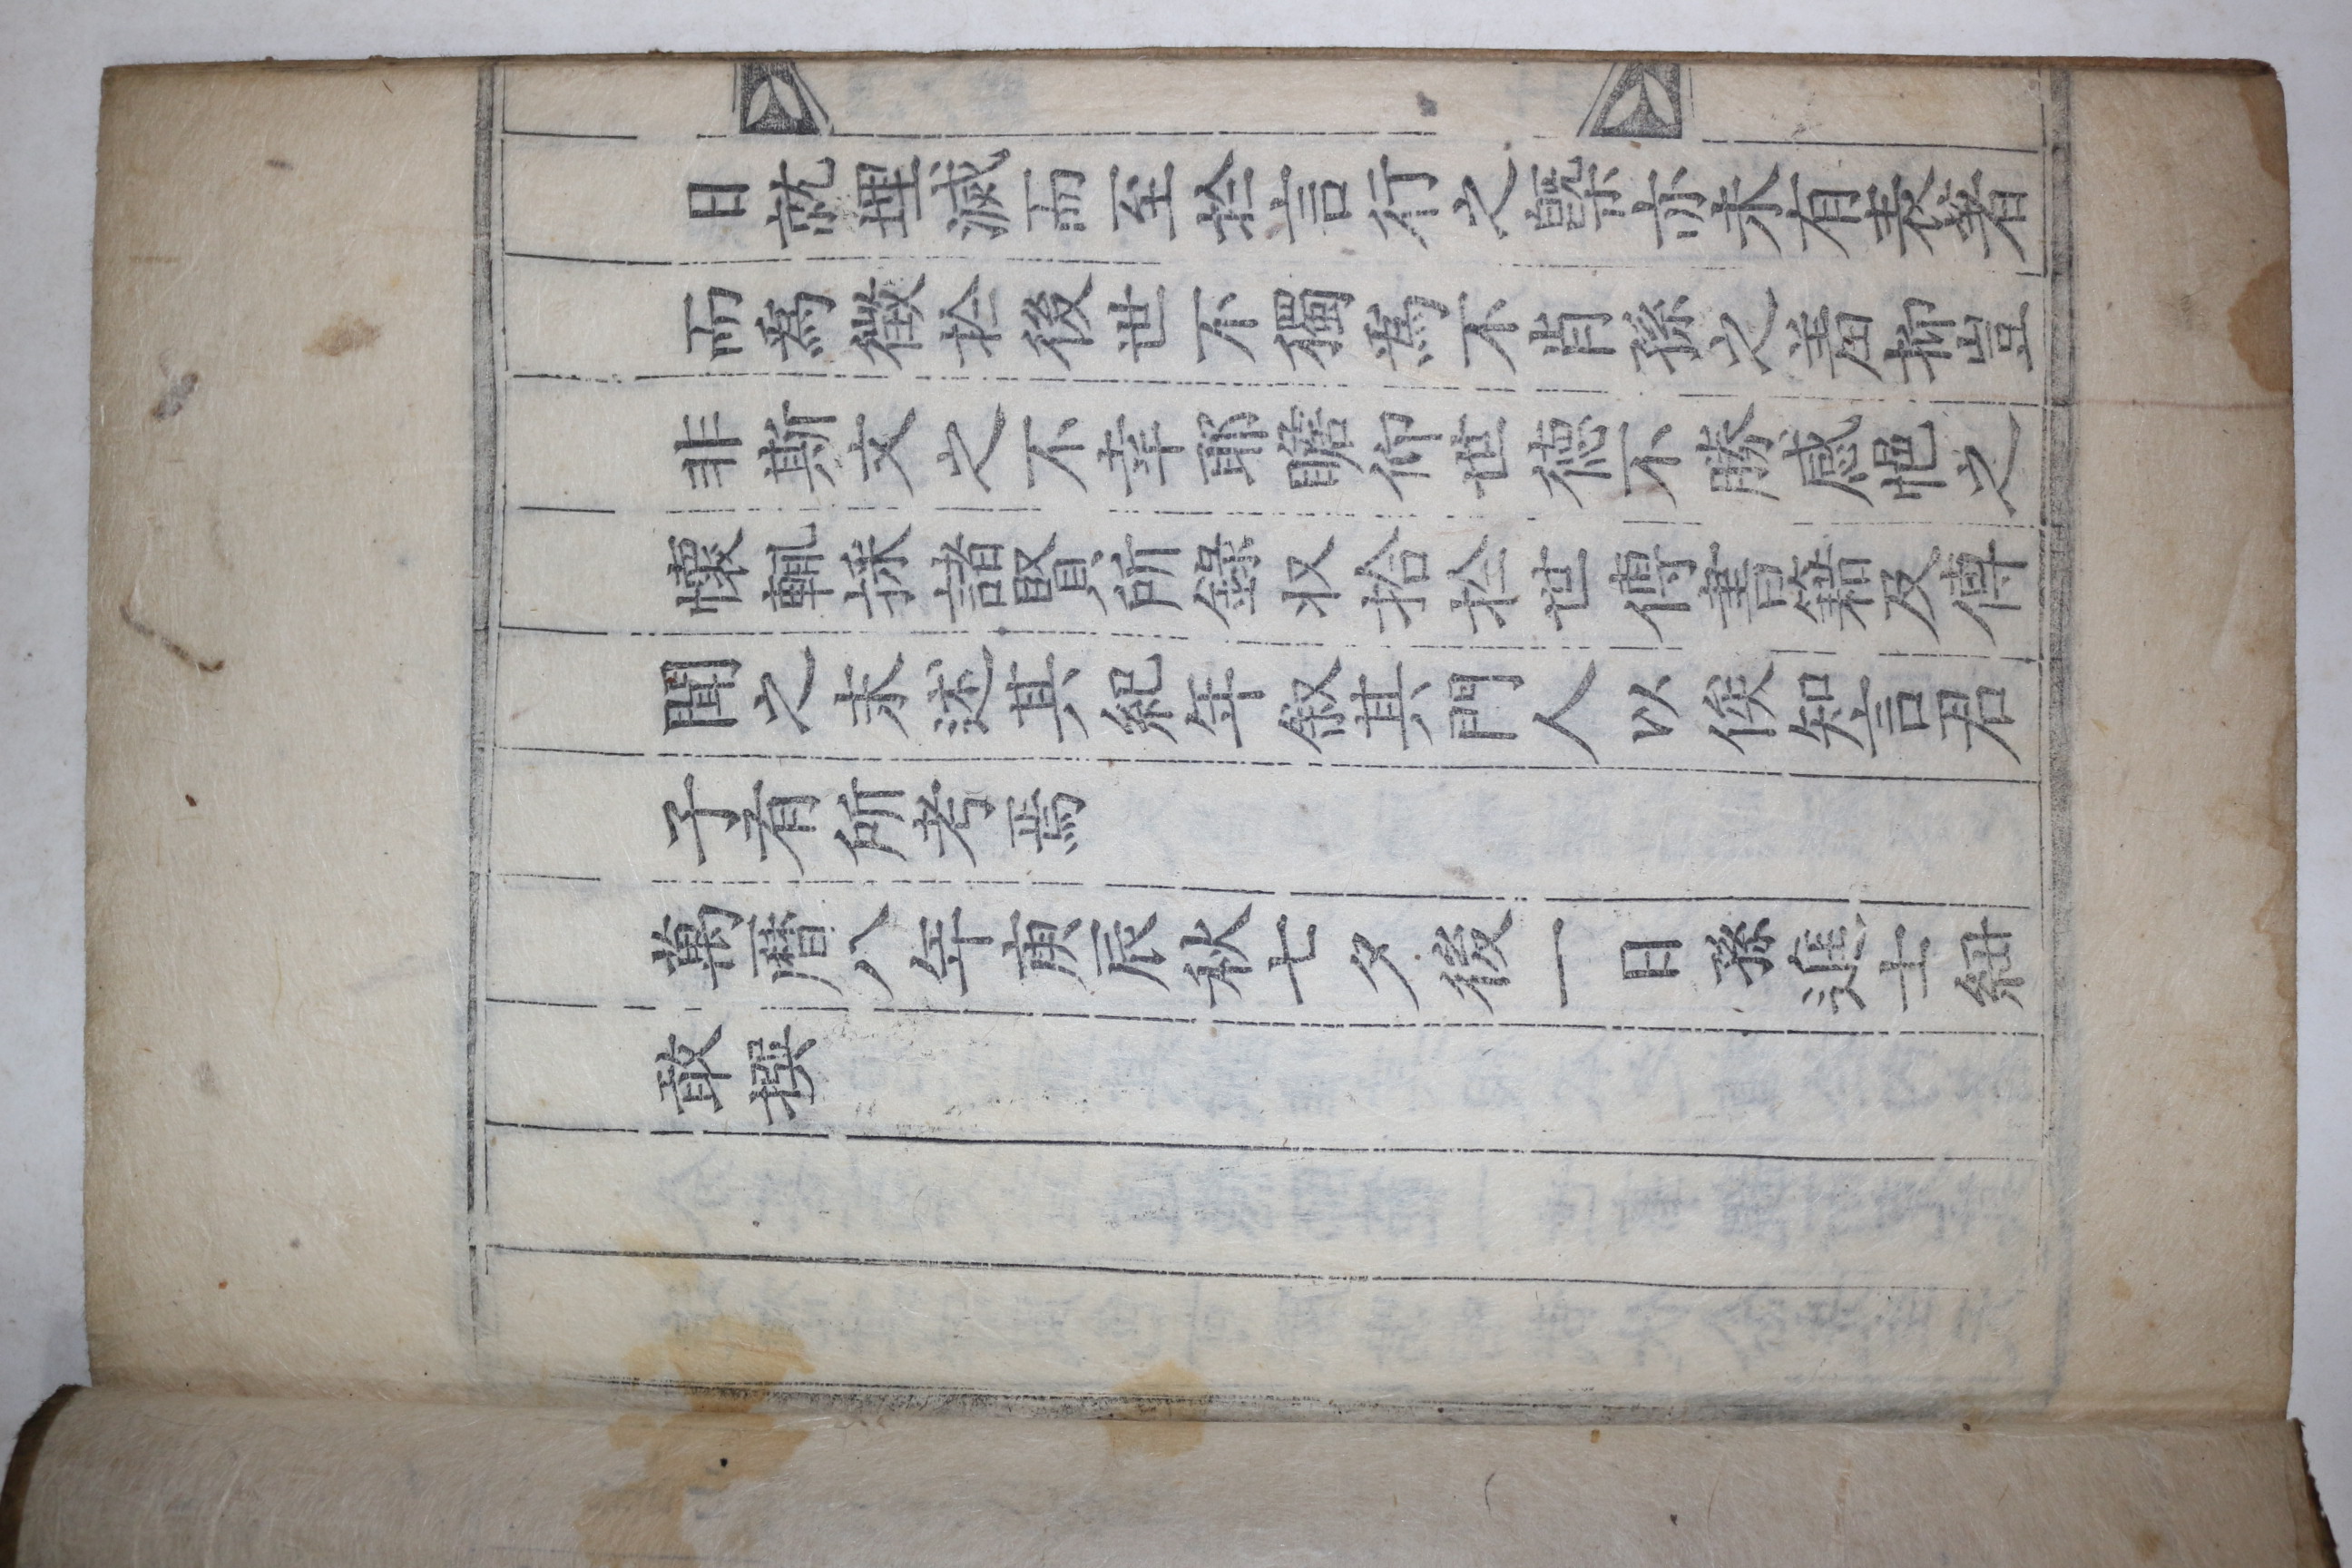 日就堙滅而至於言行之槩亦未有表著
而爲徵於後世不獨爲不肖孫之羞抑豈
非斯文之不幸耶瞻仰世德不勝感悒之
懷輒採諸賢所錄収拾於世傳書籍及傳
聞之末述其紀年叙其門人以俟知言君
子有所考焉
萬曆八年庚辰秋七夕後一日孫進士紐
敢撰